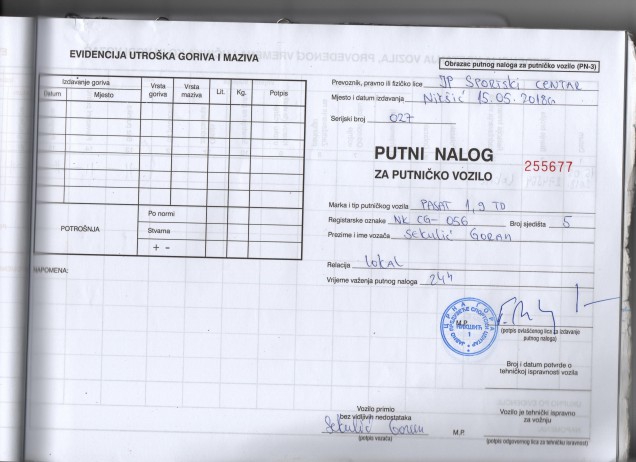 EVIDENCIJA UTROŠKA GORIVA I MAZIVA
Izdavanje goriva
Datum Mjesto Vrsta goriva Vrsta maziva Lit. Kg. Potpis
POTROŠNJA
Po normi
Stvarna
+ -
NAPOMENA:
Obrazac putnog naloga za putničko vozilo (PN-3)
Prevoznik, pravno ili fizičko lice JP SPORTSKI CENTAR
Mjesto i datum izdavanja Nikšić 15.05.2018g
Serijski broj 027
PUTNI NALOG
ZA PUTNIČKO VOZILO
255677
Marka i tip putničkog vozila PASAT 1,9 TD
Registarske oznake NK CG-056 Broj sjedišta 5
Prezime i ime vozača SEKULIĆ GORAN
Relacija LOKAL
Vrijeme važenja putnog naloga 24h
M.P.
(potpis ovlašćenog lica za izdavanje
putnog naloga)
Broj i datum potvrde o
tehničkoj ispravnosti vozila
Vozilo primio
bez vidljivih nedostataka
Sekulić Goran
(potpis vozača)
M.P.
Vozilo je tehnički ispravno
za vožnju
(potpis odgovornog lica za tehničku ispravnost)